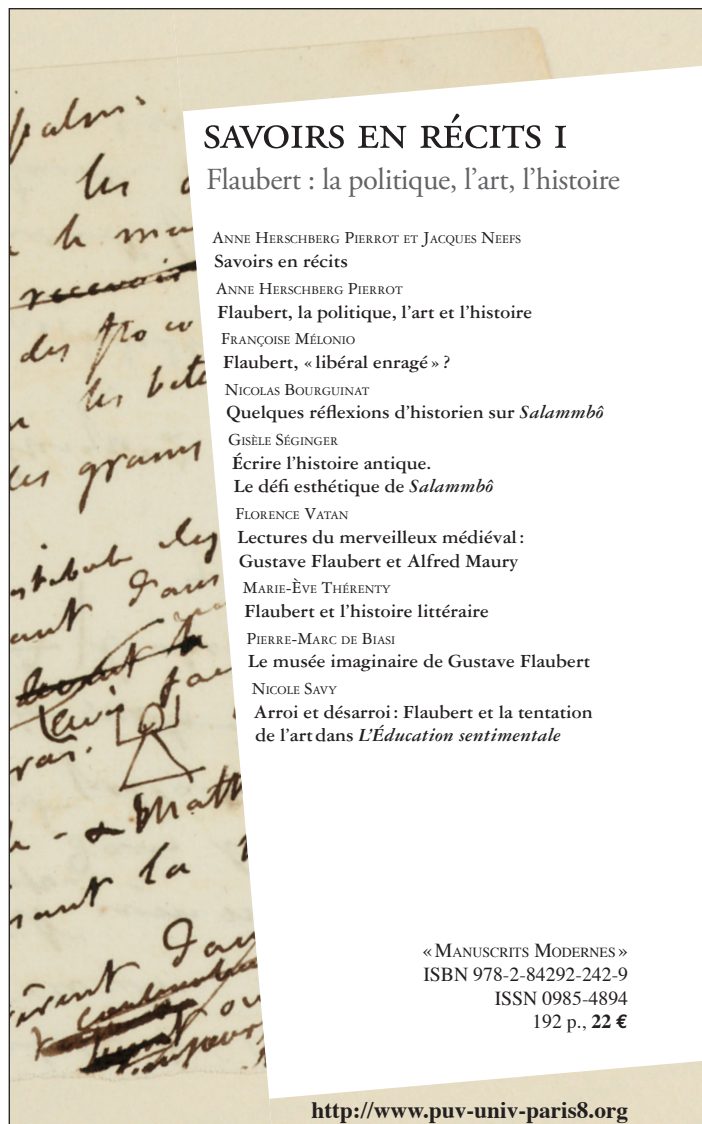 palmi
les
recevoir
des
les
les grains
dans
devant la
avis
Math
la
dans
SAVOIRS EN RÉCITS I
Flaubert : la politique, l’art, l’histoire
Anne Herschberg Pierrot et Jacques Neefs
Savoirs en récits
Anne Herschberg Pierrot
Flaubert, la politique, l’art et l’histoire
Françoise Mélonio
Flaubert, « libéral enragé » ?
Nicolas Bourguinat
Quelques réflexions d’historien sur Salammbô
Gisèle Séginger
Écrire l’histoire antique.
Le défi esthétique de Salammbô
Florence Vatan
Lectures du merveilleux médiéval :
Gustave Flaubert et Alfred Maury
Marie-Ève Thérenty
Flaubert et l’histoire littéraire
Pierre-Marc de Biasi
Le musée imaginaire de Gustave Flaubert
Nicole Savy
Arroi et désarroi : Flaubert et la tentation
de l’art dans L’Éducation sentimentale
« Manuscrits Modernes »
ISBN 978-2-84292-242-9
ISSN 0985-4894
192 p., 22 €
http://www.puv-univ-paris8.org